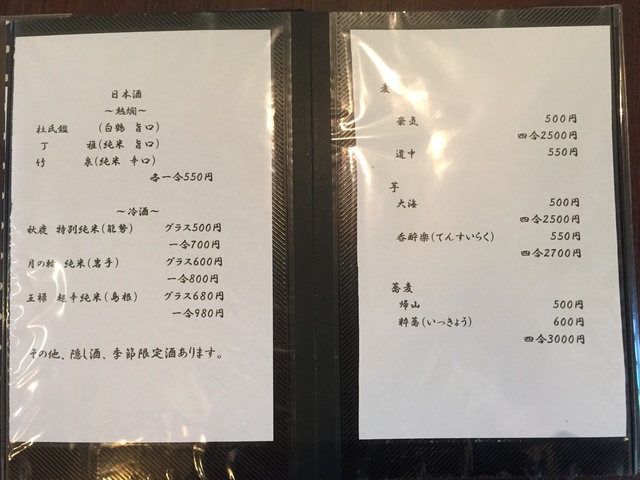 日本酒
～熱燗～
杜氏鑑 (白鶴 旨口)
丁 雅(純米 旨口)
竹 泉(純米 辛口)
各一合550円
～冷酒～
秋鹿 特別純米(能勢) グラス500円
一合700円
月の輪 純米(岩手) グラス600円
一合800円
王祿 超辛純米(島根) グラス680円
一合980円
その他、隠し酒、季節限定酒あります。
麦
豪気 500円
四合2500円
道中 550円
芋
大海 500円
四合2500円
呑酔楽(てんすいらく) 550円
四合2700円
蕎麦
帰山 500円
粋蕎(いっきょう) 600円
四合3000円